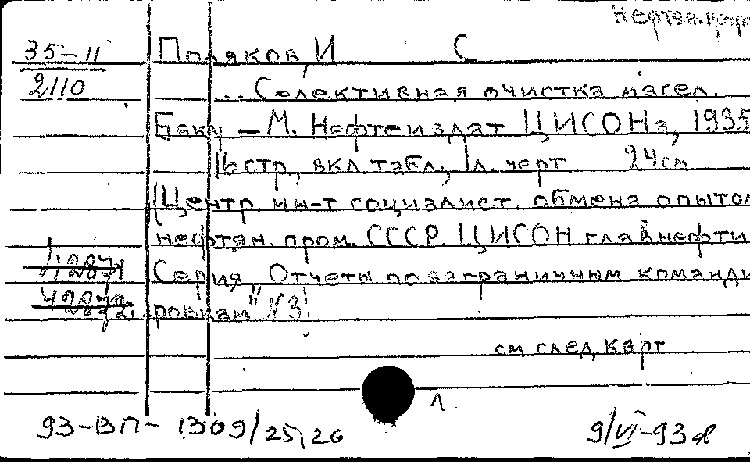 Нефтян. пром
35-11 Поляков, И С
2110 ... Селективная очистка масел.
Баку – М. Нефтеиздат ЦИСОНа, 1935
16 стр., вкл. табл., 1 л. черт 24 см
(Центр. ин-т социалист. обмена опытом
нефтян. пром. СССР ЦИСОН главнефти
Серия „Отчеты по заграничным команди
ровкам" №3)
см след карт
1
93-ВП- 1309/25,26 9/VI-93